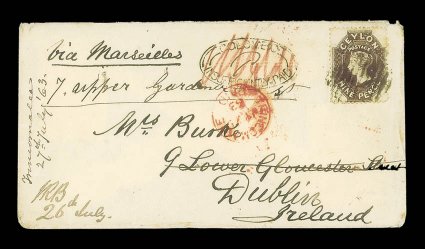 via Marseilles
COLOMBO
PAID
CEYLON
POSTAGE
NINE PENCE
7. upper Gardiner St
Mrs Burke
9 Lower Gloucester
Dublin
Ireland
27th July '63.
MB
26th July.